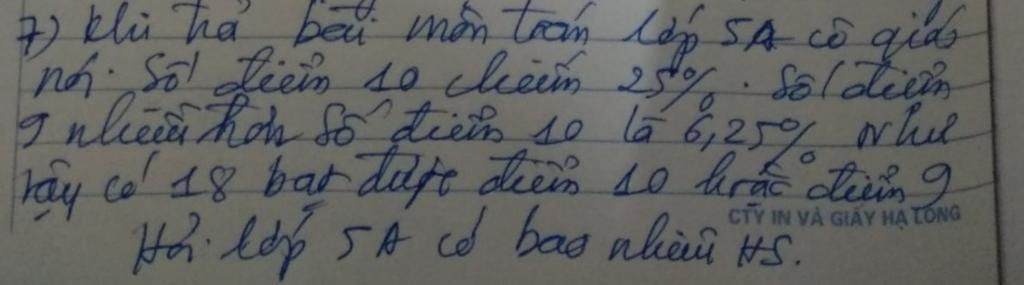 7) Khi trả bài môn toán lớp 5A cô giáo
nói. Số điểm 10 chiếm 25%. Số điểm
9 nhiều hơn số điểm 10 là 6,25% Như
vậy có 18 bạn được điểm 10 hoặc điểm 9
CTY IN VÀ GIẤY HẠ LONG
Hỏi lớp 5A có bao nhiêu HS.